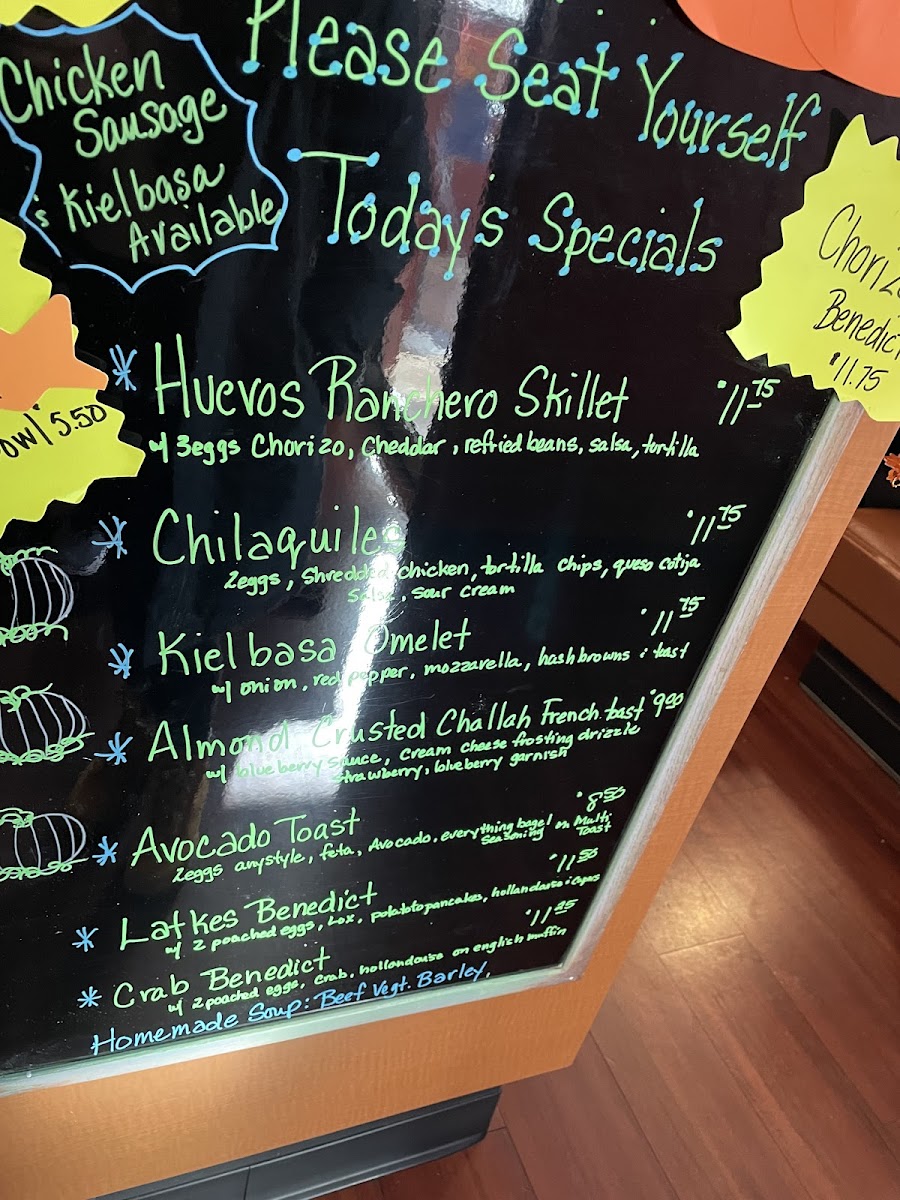 Please Seat Yourself
Chicken
Sausage
& Kielbasa
Available
Today's Specials
Chorizo
Benedict
$11.75
owl 5.50
* Huevos Ranchero Skillet $11.75
w/ 3eggs Chorizo, Cheddar, refried beans, salsa, tortilla
* Chilaquiles $11.75
2eggs, Shredded chicken, tortilla chips, queso cotija
Salsa, sour cream
* Kielbasa Omelet $11.75
w/ onion, red pepper, mozzarella, hashbrowns & toast
* Almond Crusted Challah French toast $9.90
w/ blueberry sauce, cream cheese frosting drizzle
strawberry, blueberry garnish
* Avocado Toast $8.50
2eggs anystyle, feta, Avocado, everything bagel Seasoning on Multi Toast
* Latkes Benedict $11.50
w/ 2 poached eggs, Lox, potatotopancakes, hollandaise & Capers
* Crab Benedict $11.25
w/ 2poached eggs, Crab, hollandaise on english muffin
Homemade Soup: Beef Vegt. Barley,